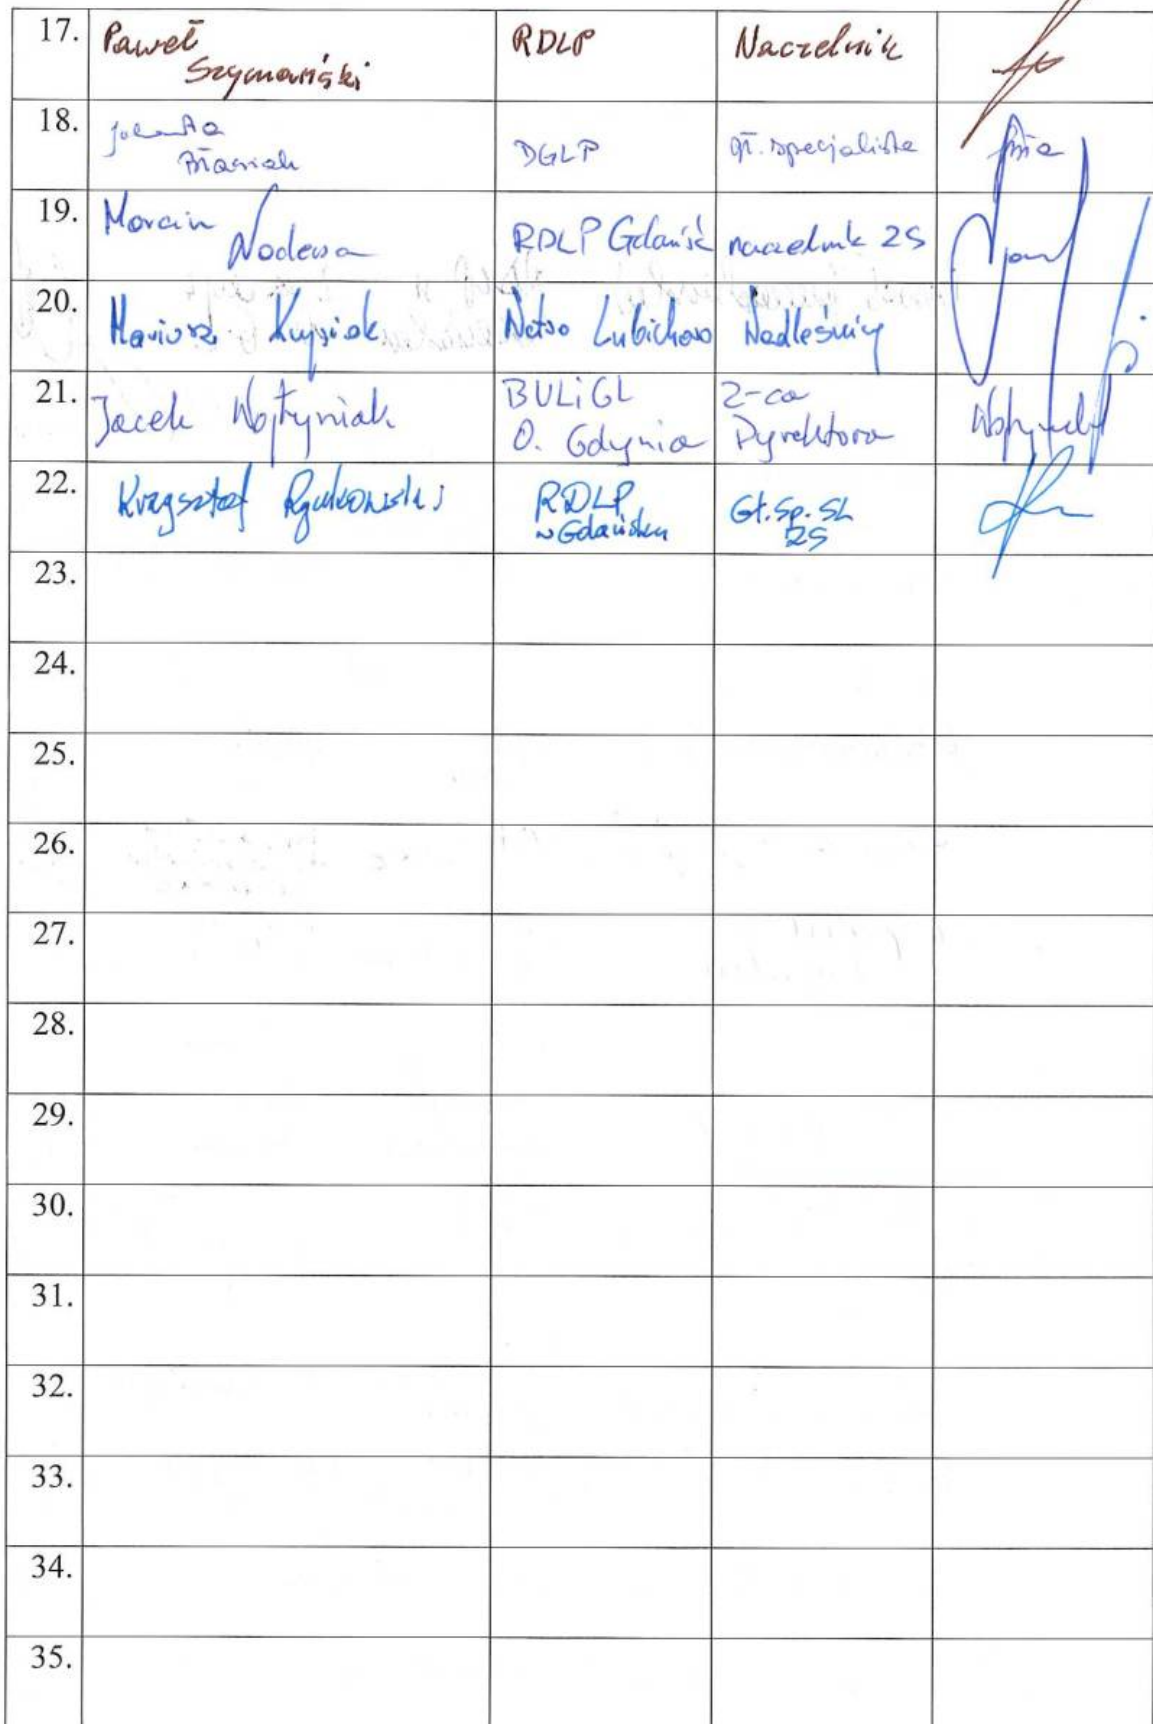 17. Paweł Szymański RDLP Naczelnik
18. Jolanta Błasiak DGLP gł. specjalista
19. Marcin Nodewa RDLP Gdańsk naczelnik ZS
20. Mariusz Krysiak Ntwo Lubichowo Nadleśniczy
21. Jacek Wojtyniak BULiGL O. Gdynia Z-ca Dyrektora
22. Krzysztof Rynkowski RDLP w Gdańsku Gł. Sp. SL ZS
23.
24.
25.
26.
27.
28.
29.
30.
31.
32.
33.
34.
35.